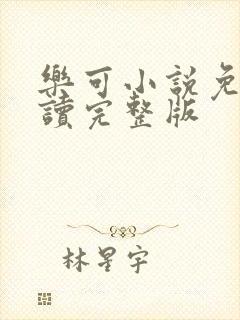 樂可小說免
讀完整版
林星宇